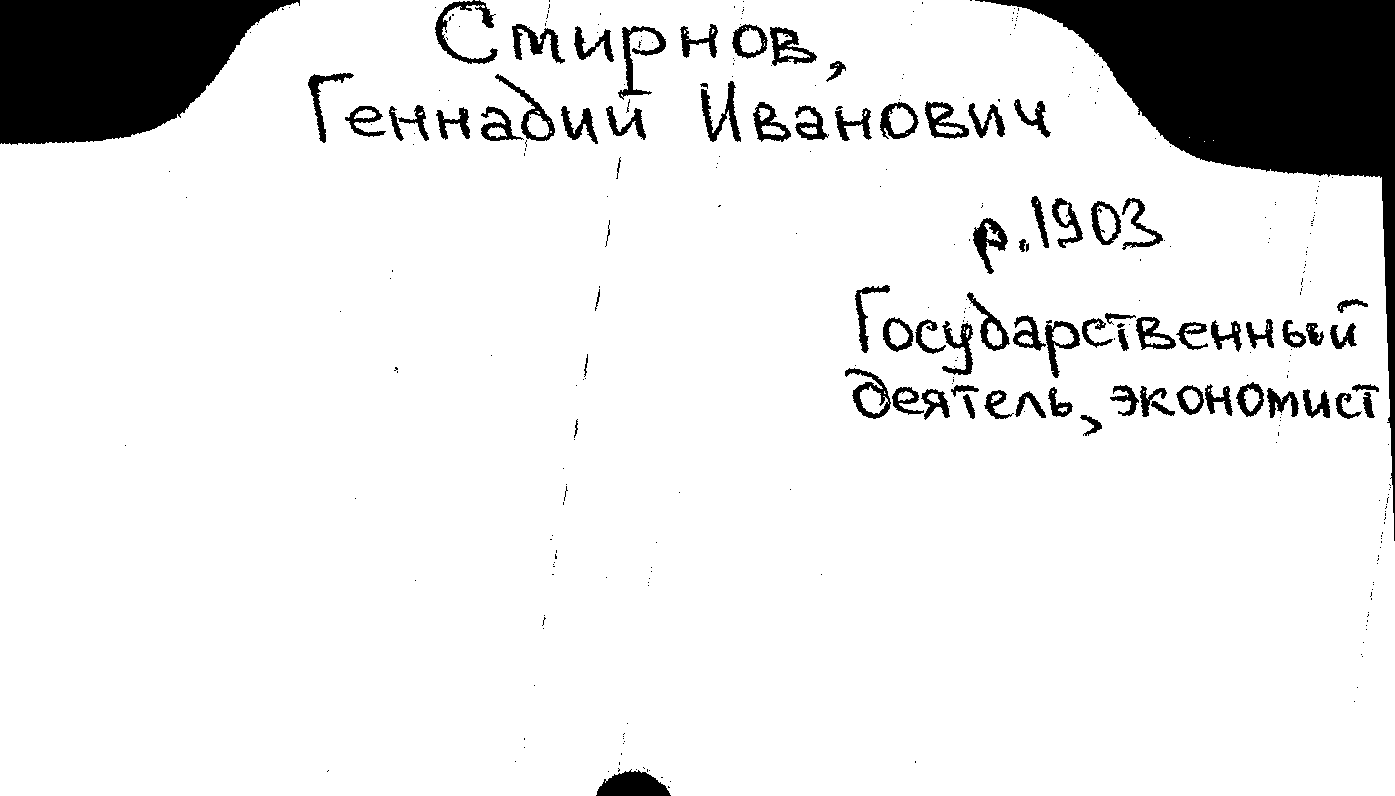 Смирнов,
Геннадий Иванович
р. 1903
Государственный
деятель, экономист